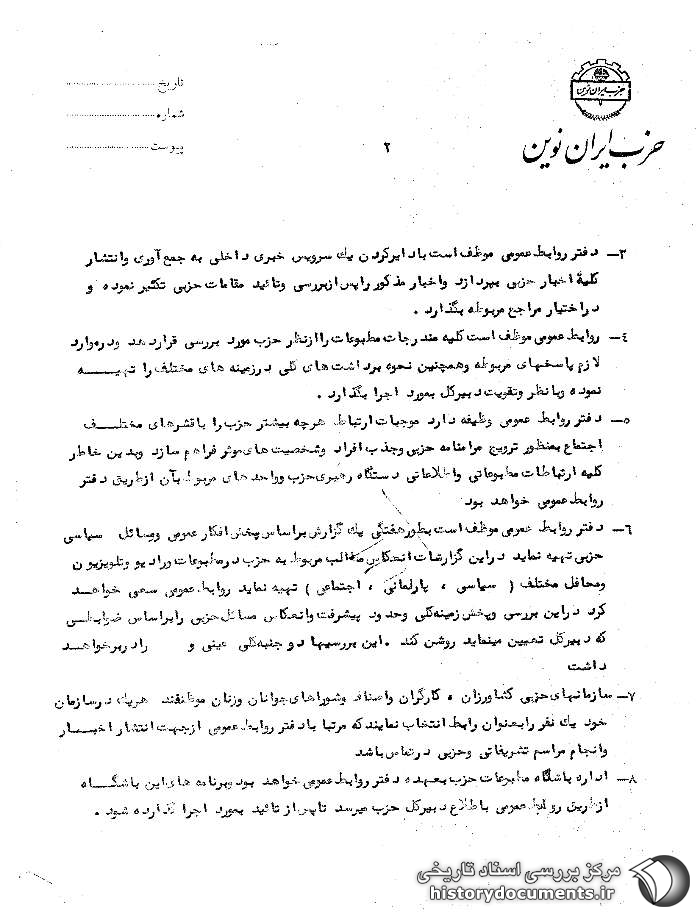 حزب ایران نوین
حزب ایران نوین
تاریخ
شماره
پیوست
۲
۳ــ دفتر روابط عمومی موظف است با دایر کردن یك سرویس خبری داخلی به جمع آوری وانتشار
کلیهٔ اخبار حزبی بپردازد واخبار مذکور را پس از بررسی وتائید مقامات حزبی تکثیر نموده و
در اختیار مراجع مربوطه بگذارد .
۴ــ روابط عمومی موظف است کلیه مندرجات مطبوعات را از نظر حزب مورد بررسی قرار دهد ودرموارد
لازم پاسخهای مربوطه وهمچنین نحوه برداشت های کلی در زمینه های مختلف را تهیــــه
نموده وبا نظر وتقویت دبیرکل بمورد اجرا بگذارد .
۵ــ دفتر روابط عمومی وظیفه دارد موجبات ارتباط هرچه بیشتر حزب را با قشرهای مختلــف
اجتماع بمنظور ترویج مرامنامه حزبی وجذب افراد وشخصیت های موثر فراهم سازد وبدین خاطر
کلیه ارتباطات مطبوعاتی واطلاعاتی دستگاه رهبری حزب وواحدهای مربوط بآن از طریق دفتر
روابط عمومی خواهد بود
۶ــ دفتر روابط عمومی موظف است بطور هفتگی یك گزارش براساس پخش افکار عمومی ومسائل سیاسی
حزبی تهیه نماید در این گزارشات انعکاس مطالب مربوط به حزب در مطبوعات ورادیو وتلویزیون
ومحافل مختلف ( سیاسی ، پارلمانی ، اجتماعی ) تهیه نماید روابط عمومی سعی خواهــد
کرد در این بررسی وپخش زمینه کلی وحدود پیشرفت وانعکاس مسائل حزبی را براساس ضوابطــی
که دبیرکل تعیین مینماید روشن کند . این بررسیها دو جنبه کلی عینی و را در بر خواهــد
داشت
۷ــ سازمانهای حزبی کشاورزان ، کارگران واصناف وشوراهای جوانان وزنان موظفند هریك در سازمان
خود یك نفر را بعنوان رابط انتخاب نمایند که مرتبا با دفتر روابط عمومی از جهت انتشار اخبــار
وانجام مراسم تشریفاتی وحزبی در تماس باشد
۸ــ اداره باشگاه مطبوعات حزب بعهده دفتر روابط عمومی خواهد بود وبرنامه های این باشگــاه
از طریق روابط عمومی با طلاع دبیرکل حزب میرسد تا پس از تائید بمورد اجرا گذارده شود .
مرکز بررسی اسناد تاریخی
historydocuments.ir